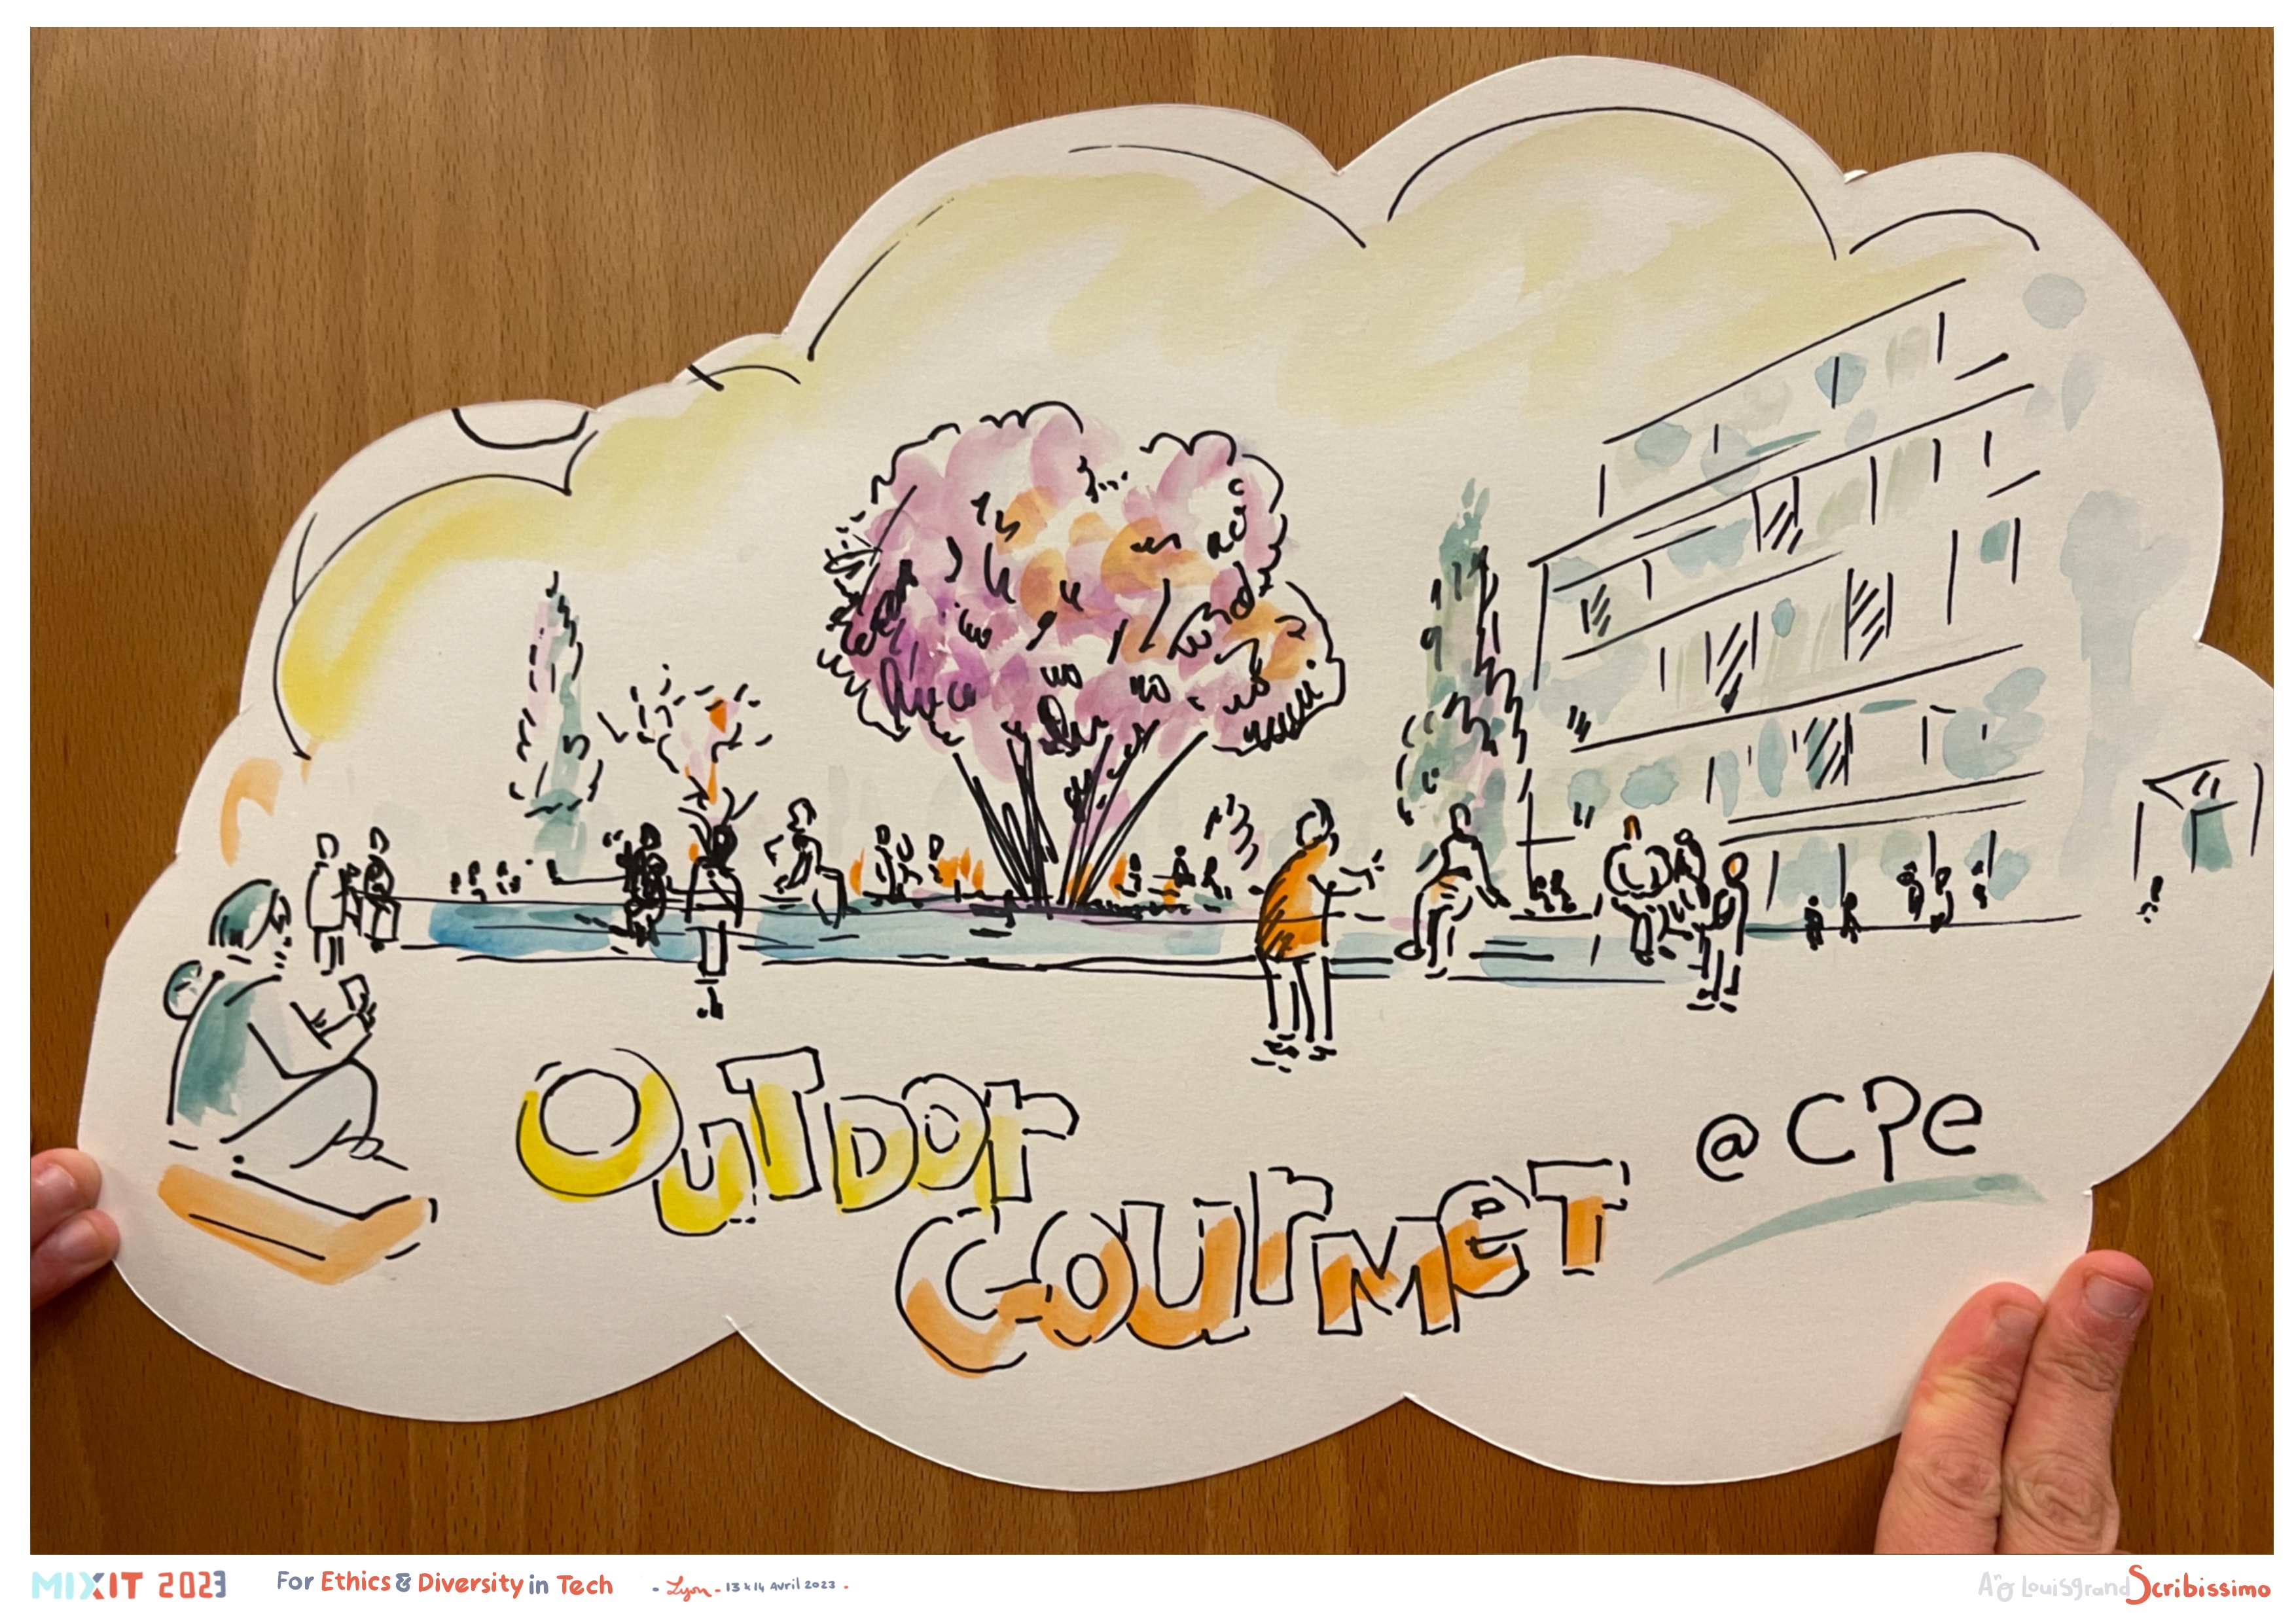 OUTDOr
GOUrMeT
@ CPe
MIXIT 2023 For Ethics & Diversity in Tech - Lyon - 13 & 14 Avril 2023 -
Louisgrand Scribissimo